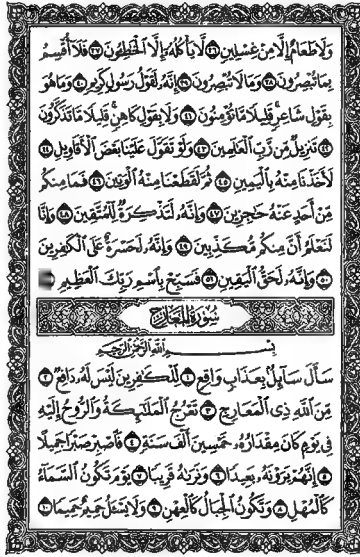 وَلَا طَعَامٌ إِلَّا مِنْ غِسْلِينٍ ٣٦ لَّا يَأْكُلُهُ إِلَّا الْخَاطِئُونَ ٣٧ فَلَا أُقْسِمُ
بِمَا تُبْصِرُونَ ٣٨ وَمَا لَا تُبْصِرُونَ ٣٩ إِنَّهُ لَقَوْلُ رَسُولٍ كَرِيمٍ ٤٠ وَمَا هُوَ
بِقَوْلِ شَاعِرٍ قَلِيلًا مَّا تُؤْمِنُونَ ٤١ وَلَا بِقَوْلِ كَاهِنٍ قَلِيلًا مَّا تَذَكَّرُونَ
٤٢ تَنزِيلٌ مِّن رَّبِّ الْعَالَمِينَ ٤٣ وَلَوْ تَقَوَّلَ عَلَيْنَا بَعْضَ الْأَقَاوِيلِ ٤٤
لَأَخَذْنَا مِنْهُ بِالْيَمِينِ ٤٥ ثُمَّ لَقَطَعْنَا مِنْهُ الْوَتِينَ ٤٦ فَمَا مِنكُم
مِّنْ أَحَدٍ عَنْهُ حَاجِزِينَ ٤٧ وَإِنَّهُ لَتَذْكِرَةٌ لِّلْمُتَّقِينَ ٤٨ وَإِنَّا
لَنَعْلَمُ أَنَّ مِنكُم مُّكَذِّبِينَ ٤٩ وَإِنَّهُ لَحَسْرَةٌ عَلَى الْكَافِرِينَ
٥٠ وَإِنَّهُ لَحَقُّ الْيَقِينِ ٥١ فَسَبِّحْ بِاسْمِ رَبِّكَ الْعَظِيمِ
سُورَةُ الْمَعَارِجِ
بِسْمِ اللَّهِ الرَّحْمَٰنِ الرَّحِيمِ
سَأَلَ سَائِلٌ بِعَذَابٍ وَاقِعٍ ١ لِّلْكَافِرِينَ لَيْسَ لَهُ دَافِعٌ ٢
مِّنَ اللَّهِ ذِي الْمَعَارِجِ ٣ تَعْرُجُ الْمَلَائِكَةُ وَالرُّوحُ إِلَيْهِ
فِي يَوْمٍ كَانَ مِقْدَارُهُ خَمْسِينَ أَلْفَ سَنَةٍ ٤ فَاصْبِرْ صَبْرًا جَمِيلًا
٥ إِنَّهُمْ يَرَوْنَهُ بَعِيدًا ٦ وَنَرَاهُ قَرِيبًا ٧ يَوْمَ تَكُونُ السَّمَاءُ
كَالْمُهْلِ ٨ وَتَكُونُ الْجِبَالُ كَالْعِهْنِ ٩ وَلَا يَسْأَلُ حَمِيمٌ حَمِيمًا ١٠